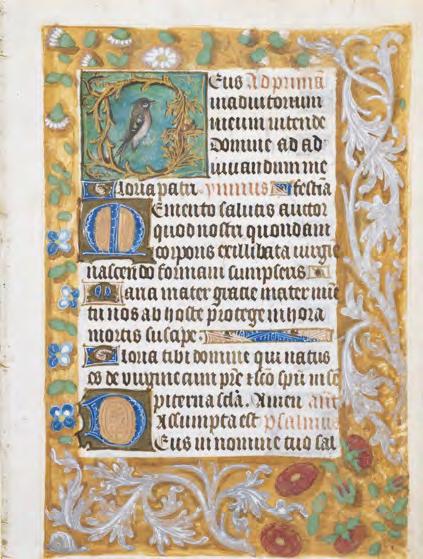 Eus Ad primā
in adiutorium
meum intende
Domine ad ad
iuuandum me
Gloria patri ymnus festia
Memento salutis auctor
quod nostri quondam
corporis ex illibata virgīe
nascendo formam sumpseris
Maria mater gratie mater mīe
tu nos ab hoste protege in hora
mortis suscipe
Gloria tibi domine qui natus
es de virgine cum pr̄e et sc̄o spū in se
piterna sclā. Amen ant̄
Assumpta est psalmus
Deus in nomine tuo sal